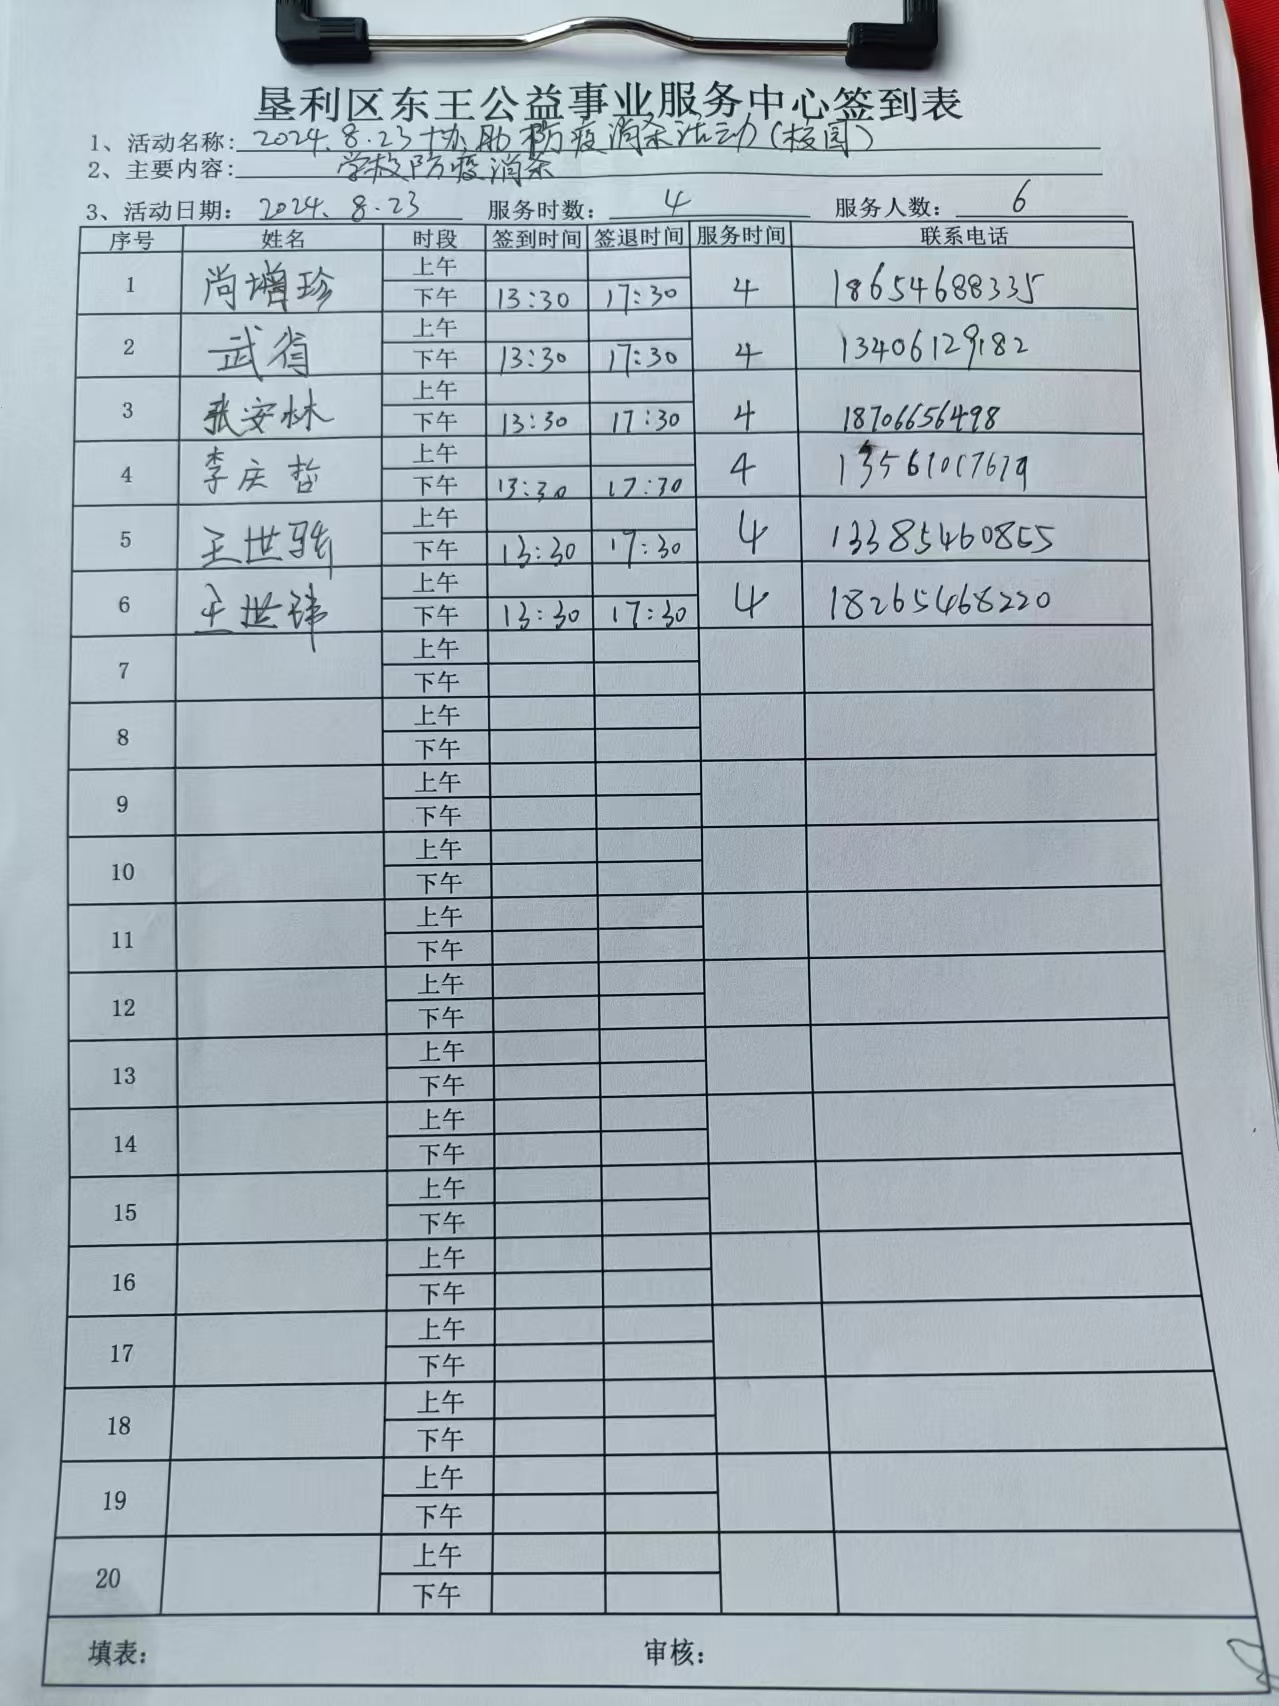 垦利区东王公益事业服务中心签到表
1、活动名称: 2024.8.23协助防疫消杀活动(校园)
2、主要内容: 学校防疫消杀
3、活动日期: 2024.8.23 服务时数: 4 服务人数: 6
序号 姓名 时段 签到时间 签退时间 服务时间 联系电话
1 尚增珍 上午
下午 13:30 17:30 4 18654688335
2 武省 上午
下午 13:30 17:30 4 13406129182
3 张安林 上午
下午 13:30 17:30 4 18706656498
4 李庆哲 上午
下午 13:30 17:30 4
5 王世骄 上午
下午 13:30 17:30 4 13385460855
6 王世祎 上午
下午 13:30 17:30 4 18265468220
7 上午
下午
8 上午
下午
9 上午
下午
10 上午
下午
11 上午
下午
12 上午
下午
13 上午
下午
14 上午
下午
15 上午
下午
16 上午
下午
17 上午
下午
18 上午
下午
19 上午
下午
20 上午
下午
填表: 审核: